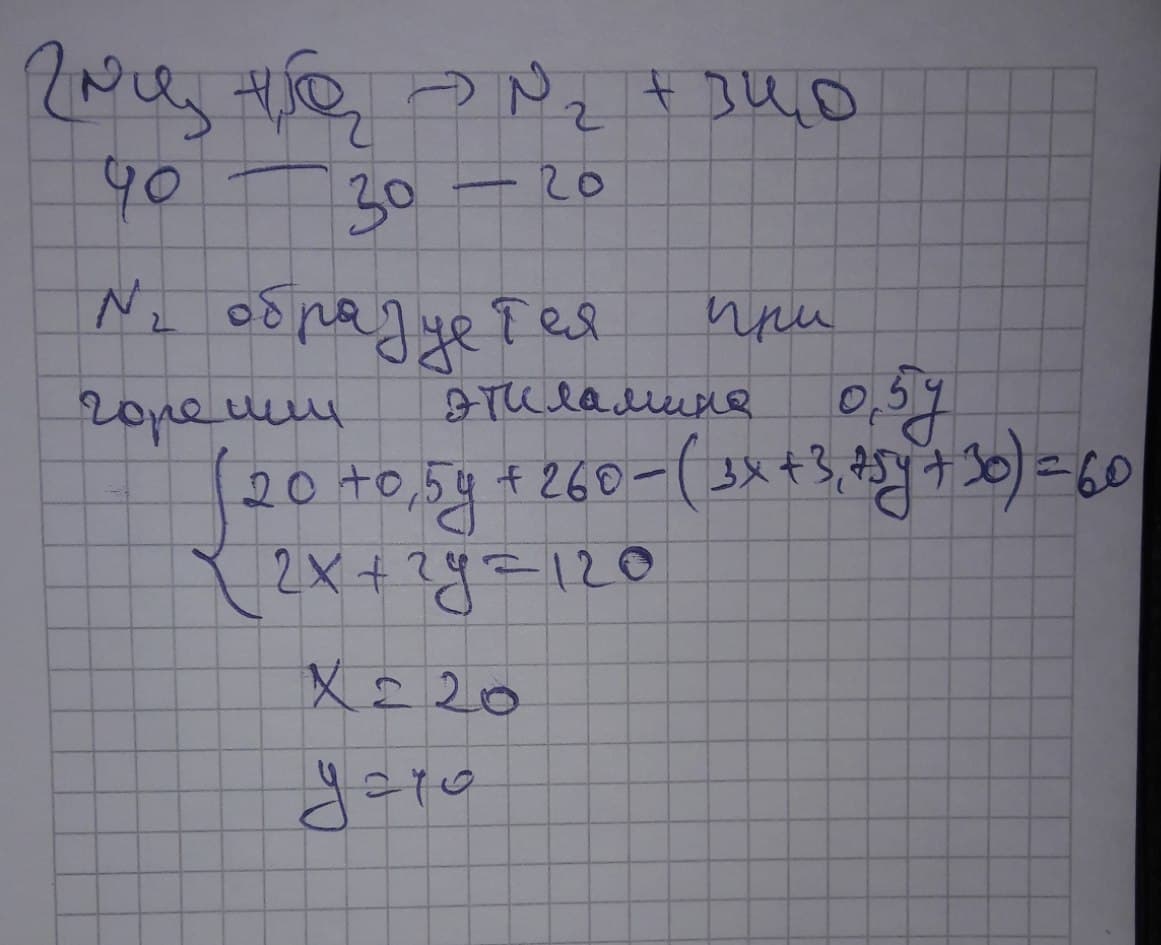 2NH₃ + 1,5O₂ → N₂ + 3H₂O
40 — 30 — 20
N₂ образуется при
горении этиламина 0,5y
{ 20 + 0,5y + 260 - (3x + 3,75y + 30) = 60
2x + 2y = 120
x = 20
y = 40